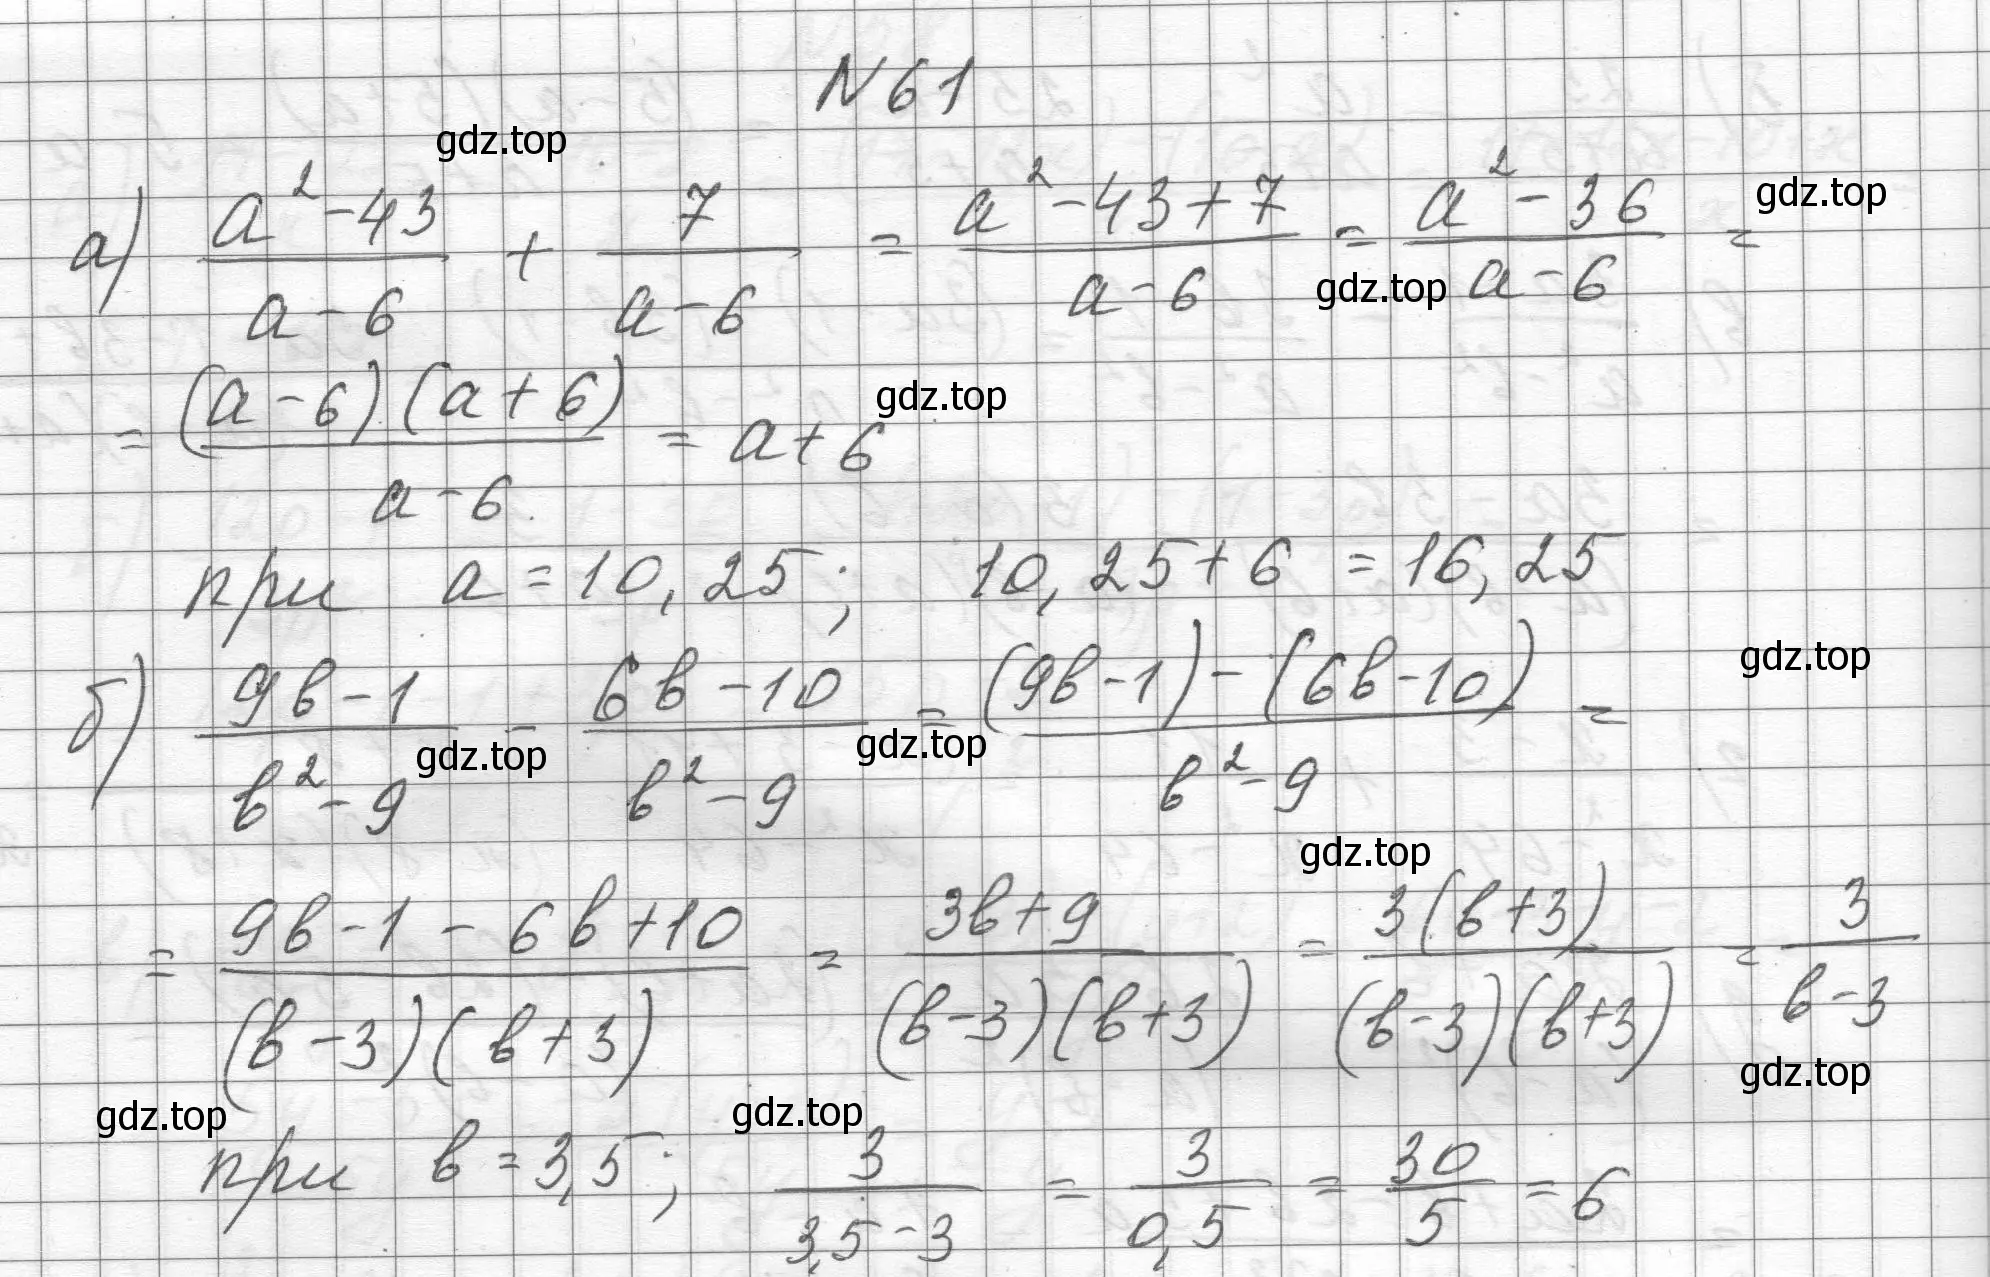 N 61
gdz.top
а) (a² - 43)/(a - 6) + 7/(a - 6) = (a² - 43 + 7)/(a - 6) = (a² - 36)/(a - 6) =
gdz.top
gdz.top
= ((a - 6)(a + 6))/(a - 6) = a + 6
gdz.top
при a = 10,25; 10,25 + 6 = 16,25
б) (9b - 1)/(b² - 9) - (6b - 10)/(b² - 9) = ((9b - 1) - (6b - 10))/(b² - 9) =
gdz.top
gdz.top
gdz.top
gdz.top
= (9b - 1 - 6b + 10)/((b - 3)(b + 3)) = (3b + 9)/((b - 3)(b + 3)) = (3(b + 3))/((b - 3)(b + 3)) = 3/(b - 3)
gdz.top
gdz.top
gdz.top
при b = 3,5; 3/(3,5 - 3) = 3/0,5 = 30/5 = 6